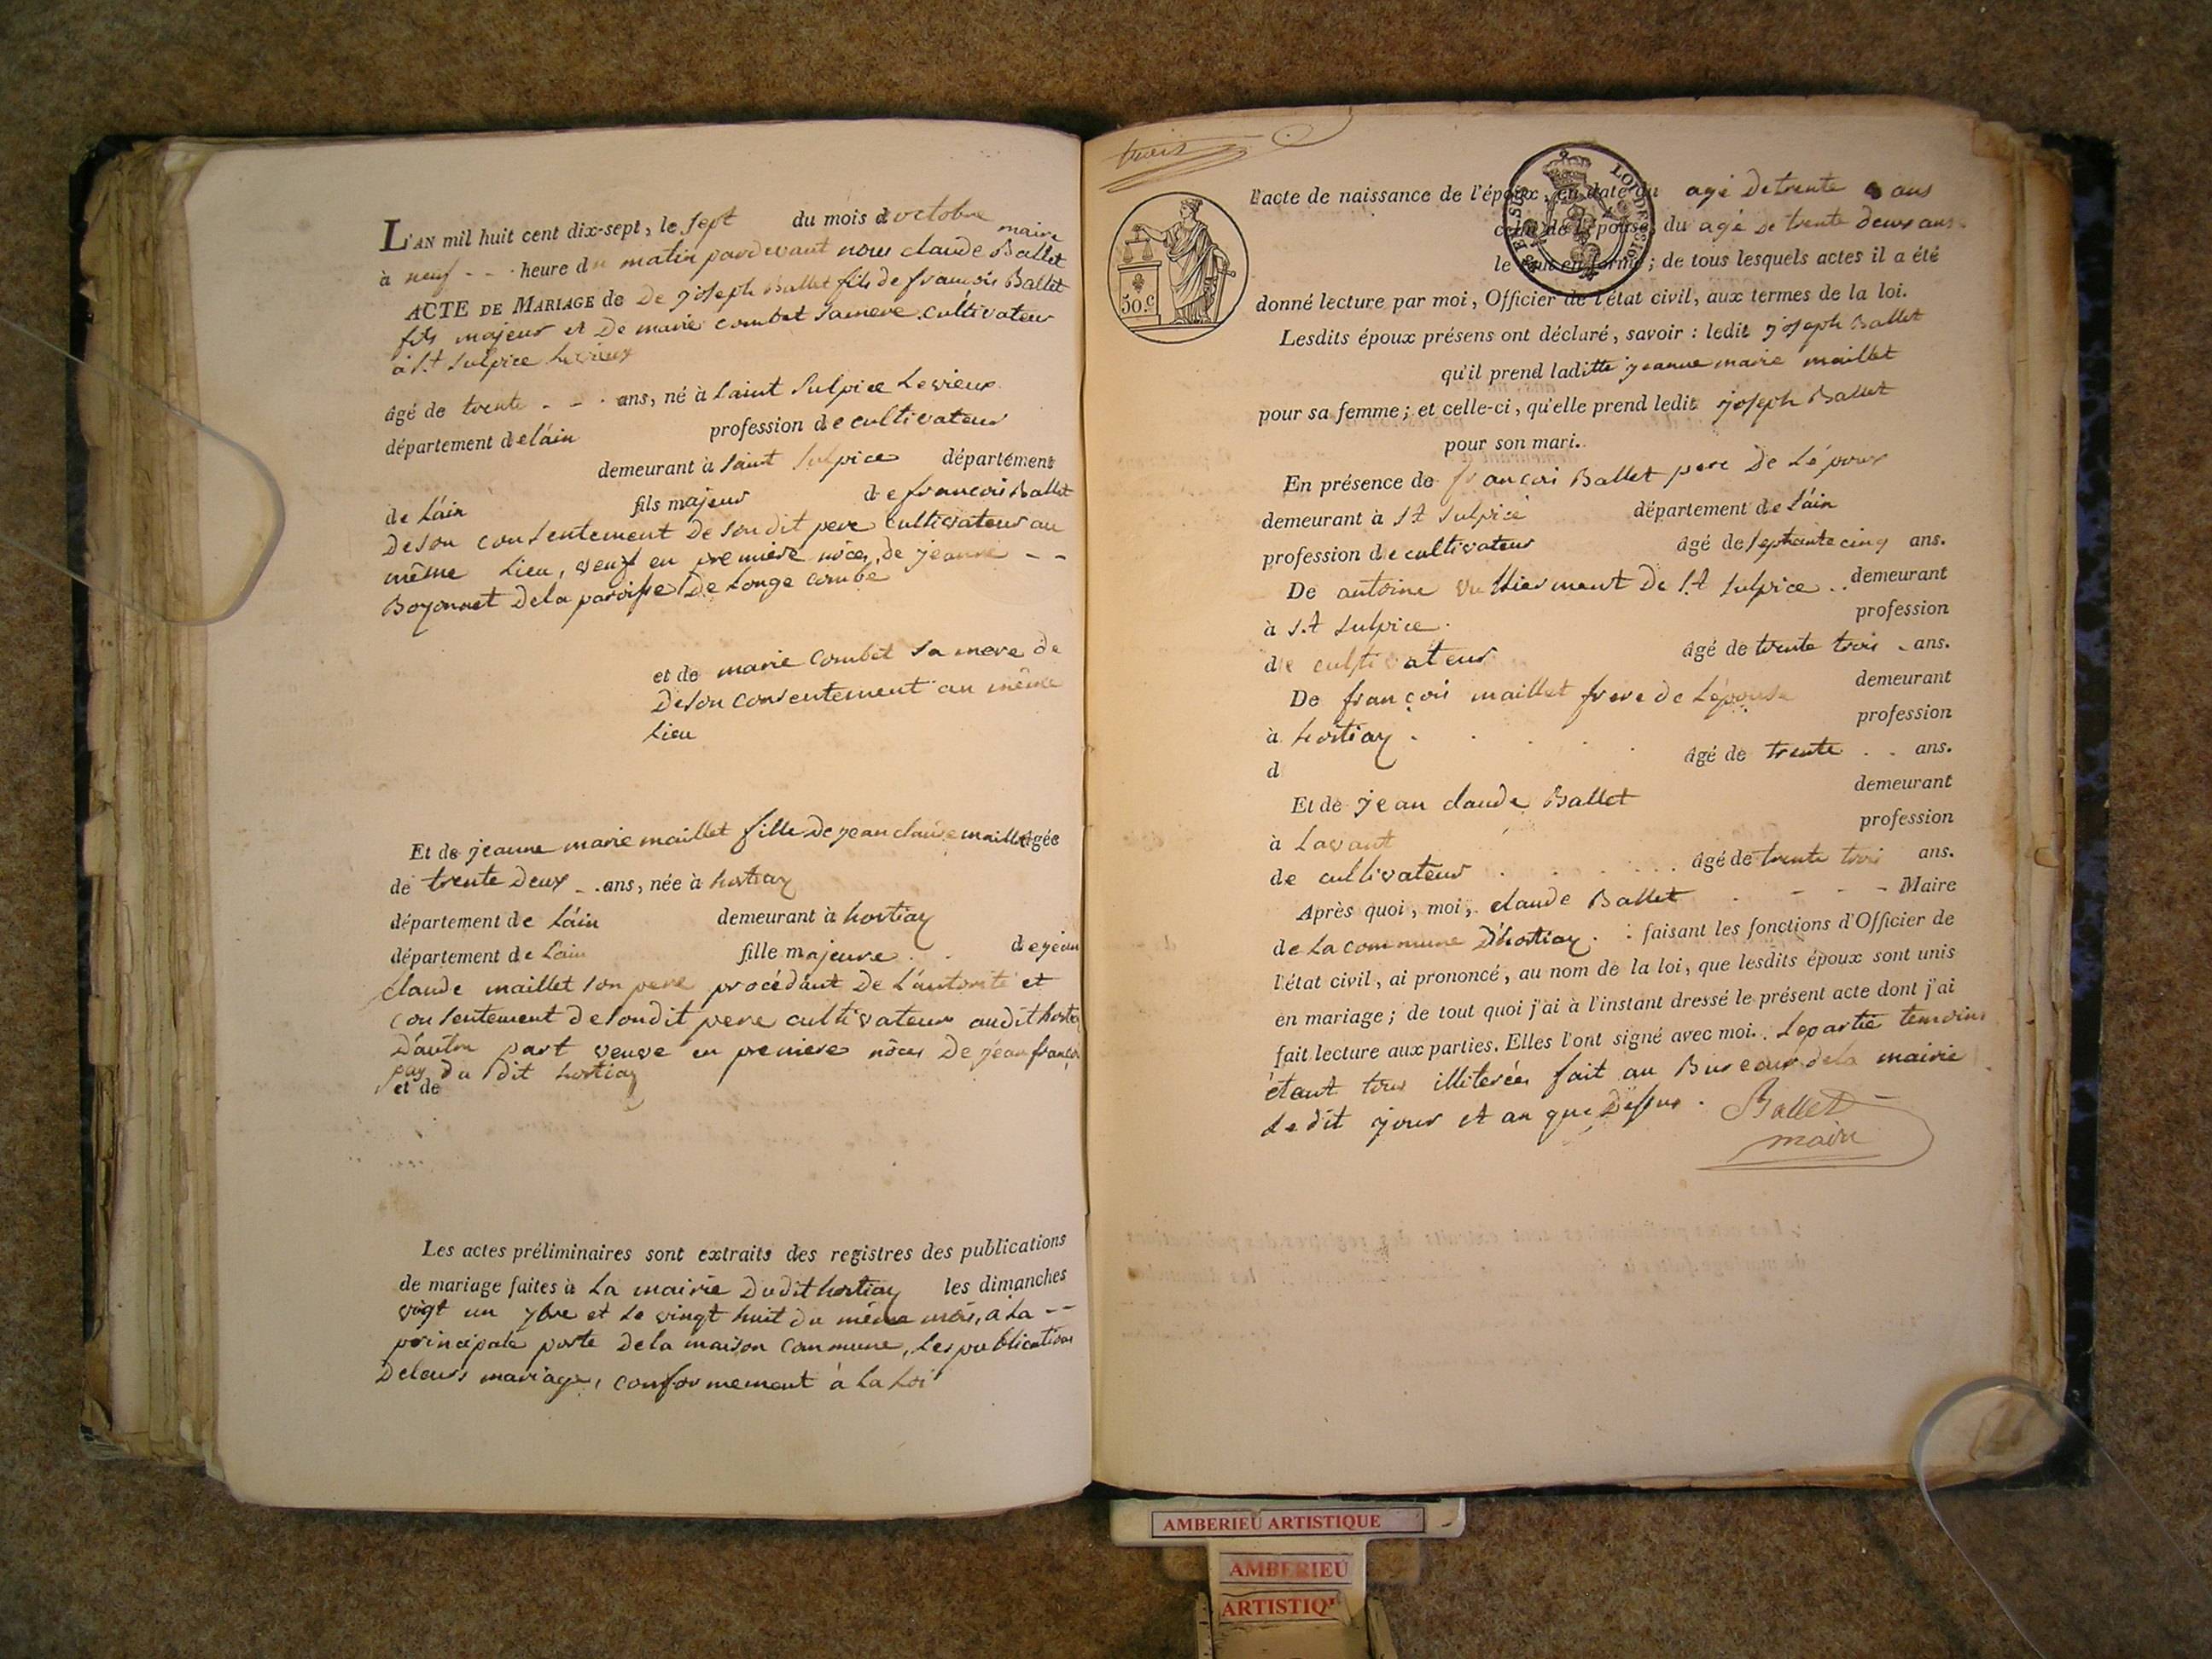 L'AN mil huit cent dix-sept, le sept du mois d'octobre
maire
à neuf heure du matin pardevant nous claude Ballet
ACTE DE MARIAGE de De joseph Ballet fils de francois Ballet
fils majeur et De marie combet sa mere cultivateur
à St Sulpice Levieux
âgé de trente ans, né à Saint Sulpice Levieux
département de láin profession de cultivateur
demeurant à Saint Sulpice département
de Láin fils majeur de francois Ballet
De son consentement De son dit pere cultivateur au
même Lieu, veuf en première nôces, de jeanne
Boyonnet De la paroisse De Longe combe
et de marie Combet sa mere de
De son consentement au même
Lieu
Et de jeanne marie maillet fille De jean claude maillet âgée
de trente Deux ans, née à hostiaz
département de Láin demeurant à hostiaz
département de Láin fille majeure de jean
claude maillet son pere procédant De L'autorité et
consentement De son dit pere cultivateur au dit hostiaz
D'autre part veuve en premiere nôces De jean francois
pay Du dit hostiaz
et de
Les actes préliminaires sont extraits des registres des publications
de mariage faites à La mairie Du dit hostiaz les dimanches
vingt un 7bre et Le vingt huit du même mois, a La
principale porte De la maison Commune, Les publications
De leurs mariage, conformement à La Loi
trois
50 c
l'acte de naissance de l'époux, en date du agé De trente ans
celui de l'épouse, du agé De trente deux ans
le tout en forme; de tous lesquels actes il a été
donné lecture par moi, Officier de l'état civil, aux termes de la loi.
Lesdits époux présens ont déclaré, savoir : ledit joseph Ballet
qu'il prend laditte jeanne marie maillet
pour sa femme; et celle-ci, qu'elle prend ledit joseph Ballet
pour son mari.
En présence de francois Ballet pere De Lépoux
demeurant à St Sulpice département de Láin
profession de cultivateur âgé de septante cinq ans.
De antoine vulliermet De St Sulpice demeurant
à St Sulpice profession
de cultivateur âgé de trente trois ans.
De françois maillet frere de Lépouse demeurant
à hostiaz profession
d âgé de trente ans.
Et de jean claude Ballet demeurant
à Lavant profession
de cultivateur âgé de trente trois ans.
Après quoi, moi, claude Ballet Maire
de La commune D'hostiaz faisant les fonctions d'Officier de
l'état civil, ai prononcé, au nom de la loi, que lesdits époux sont unis
en mariage; de tout quoi j'ai à l'instant dressé le présent acte dont j'ai
fait lecture aux parties. Elles l'ont signé avec moi. Le partie temoins
étant tous illiterées fait au Bureaux de la mairie
Le dit jour et an que Dessus.
Ballet
maire
AMBERIEU ARTISTIQUE
AMBERIEU
ARTISTIQ